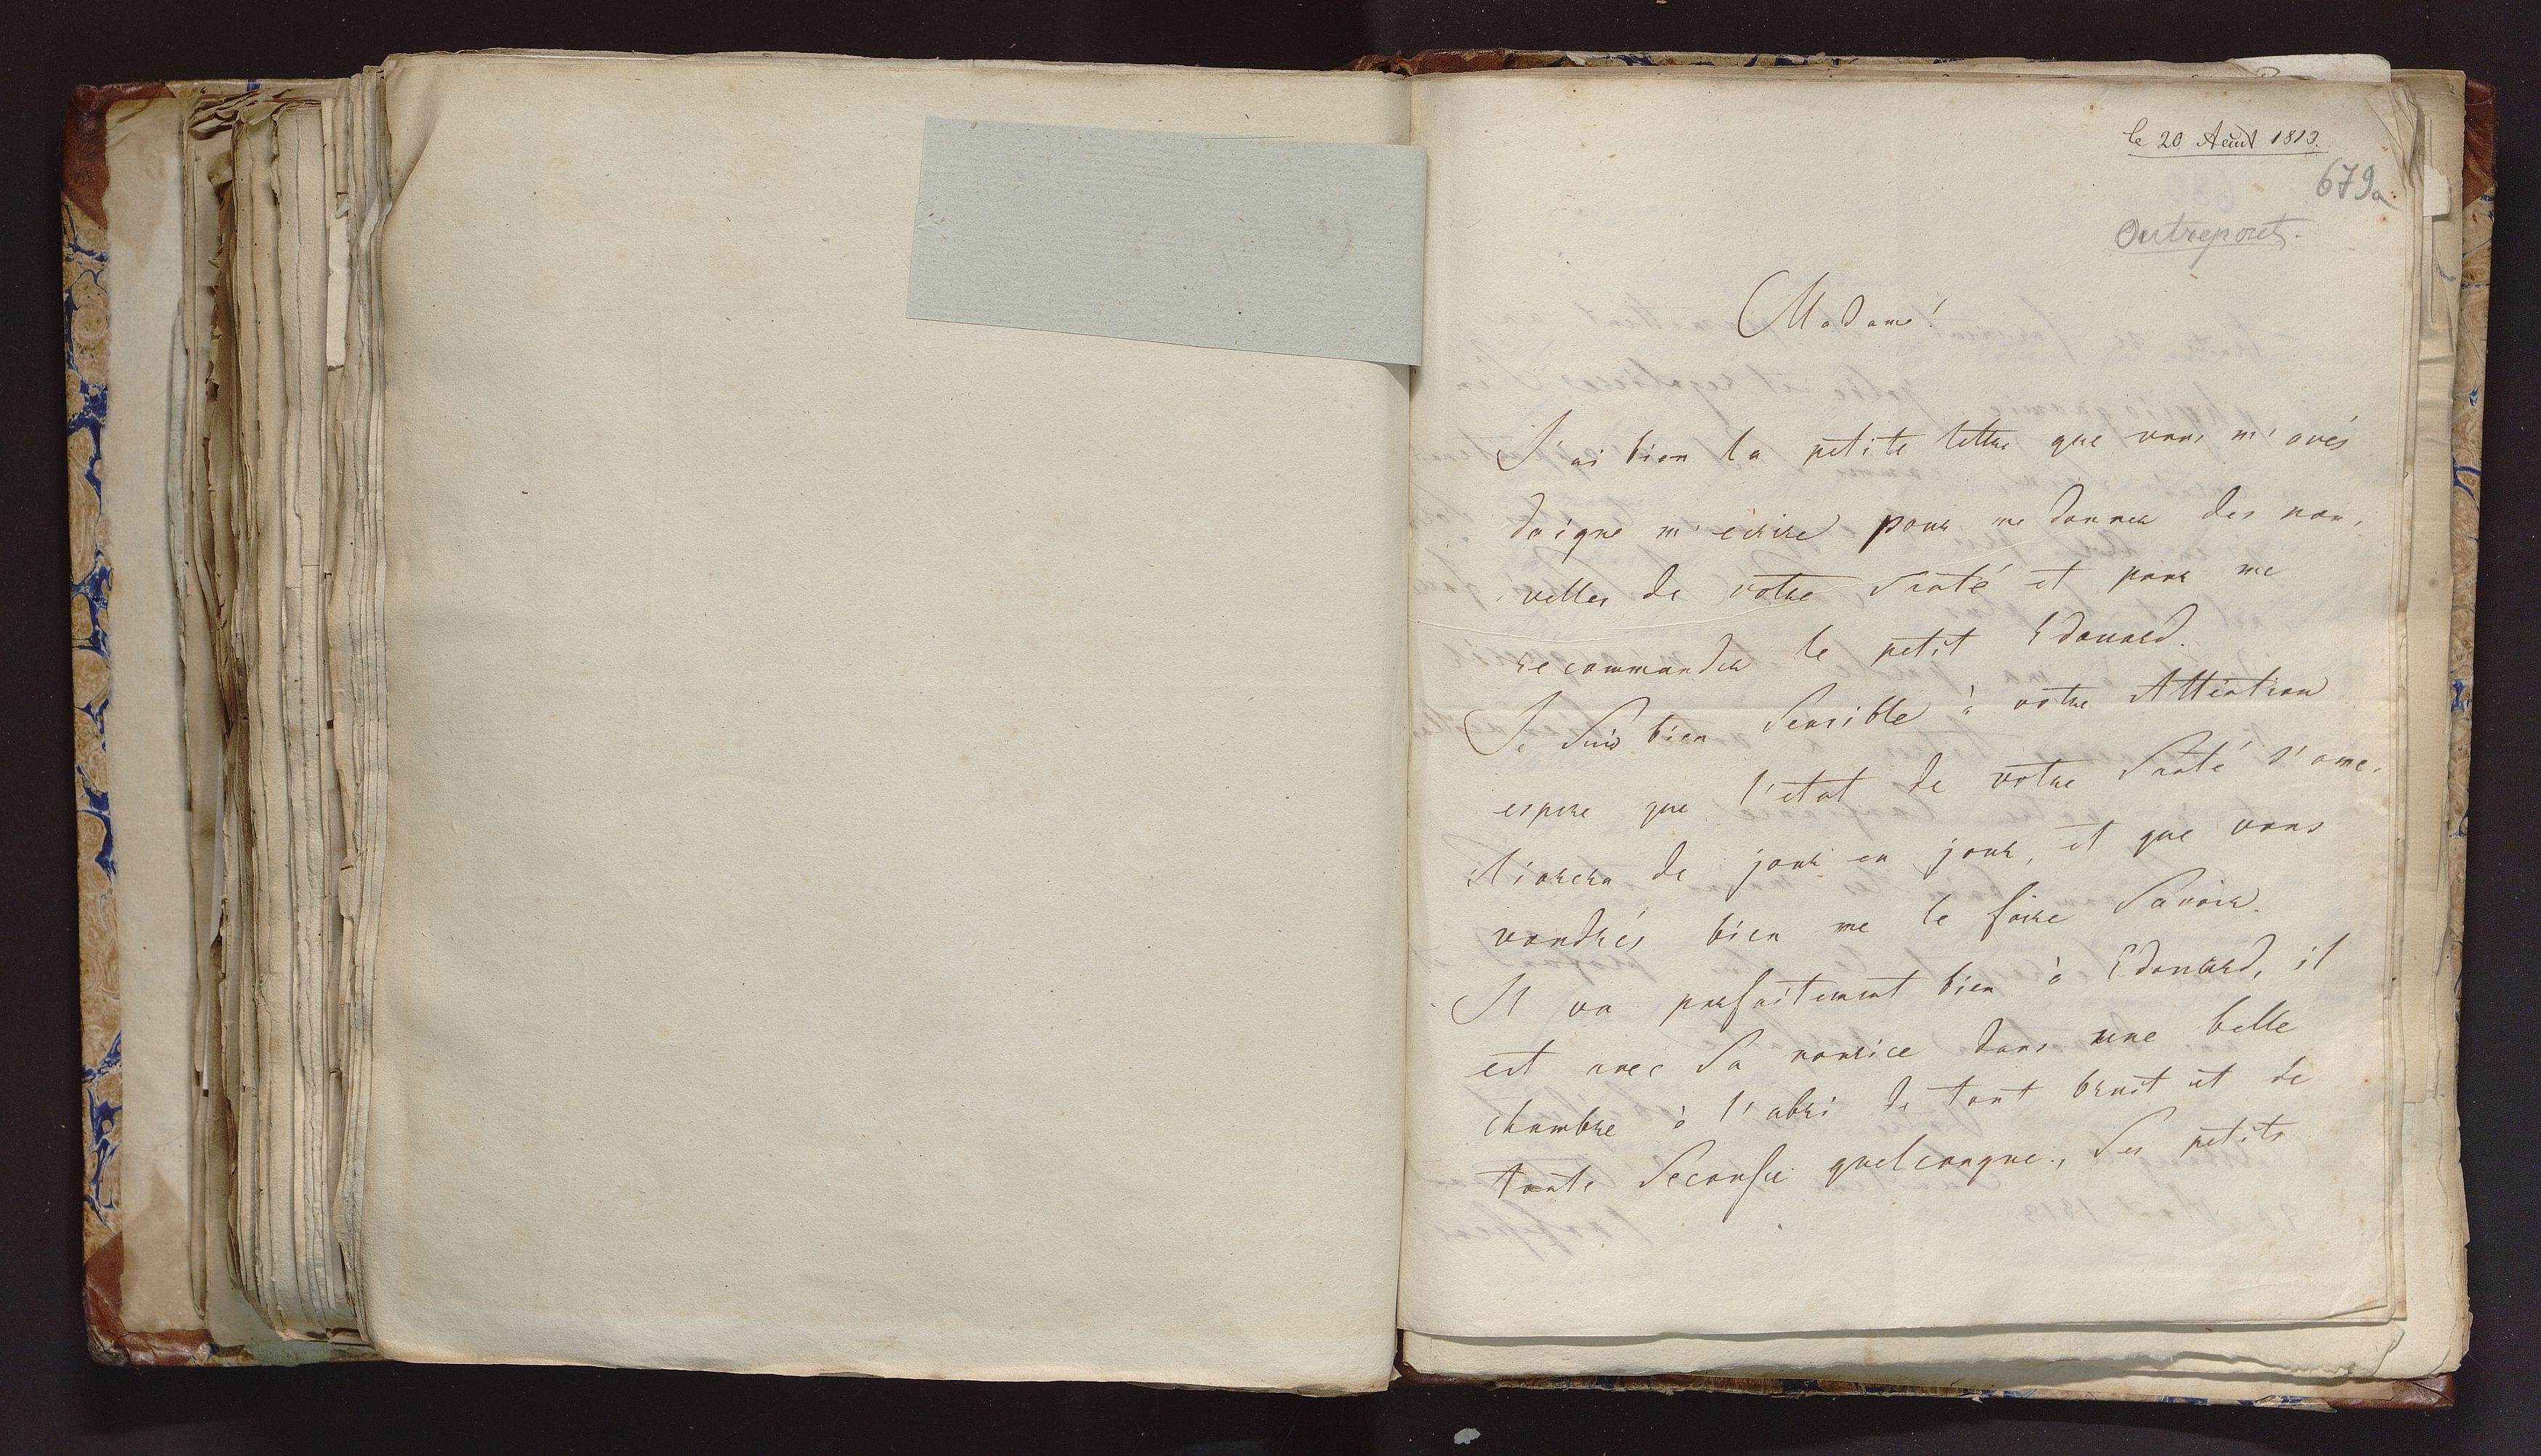 le 20 Août 1813.
679a
Outrepont.
Madame!
J'ai bien la petite lettre que vous m'avés
daigne m'écrire pour me donner des nou,
velles de votre Santé et pour me
recommander le petit Edouard.
Je Suis bien Sensible à votre Attention
espere que l'etat de votre Santé s'ame,
liorera de jour en jour, et que vous
voudrés bien me le faire Savoir.
Il va parfaitement bien à Edouard, il
est avec Sa nourice dans une belle
chambre à l'abri de tout bruit et de
toute Secousse quelconque, Ses petits